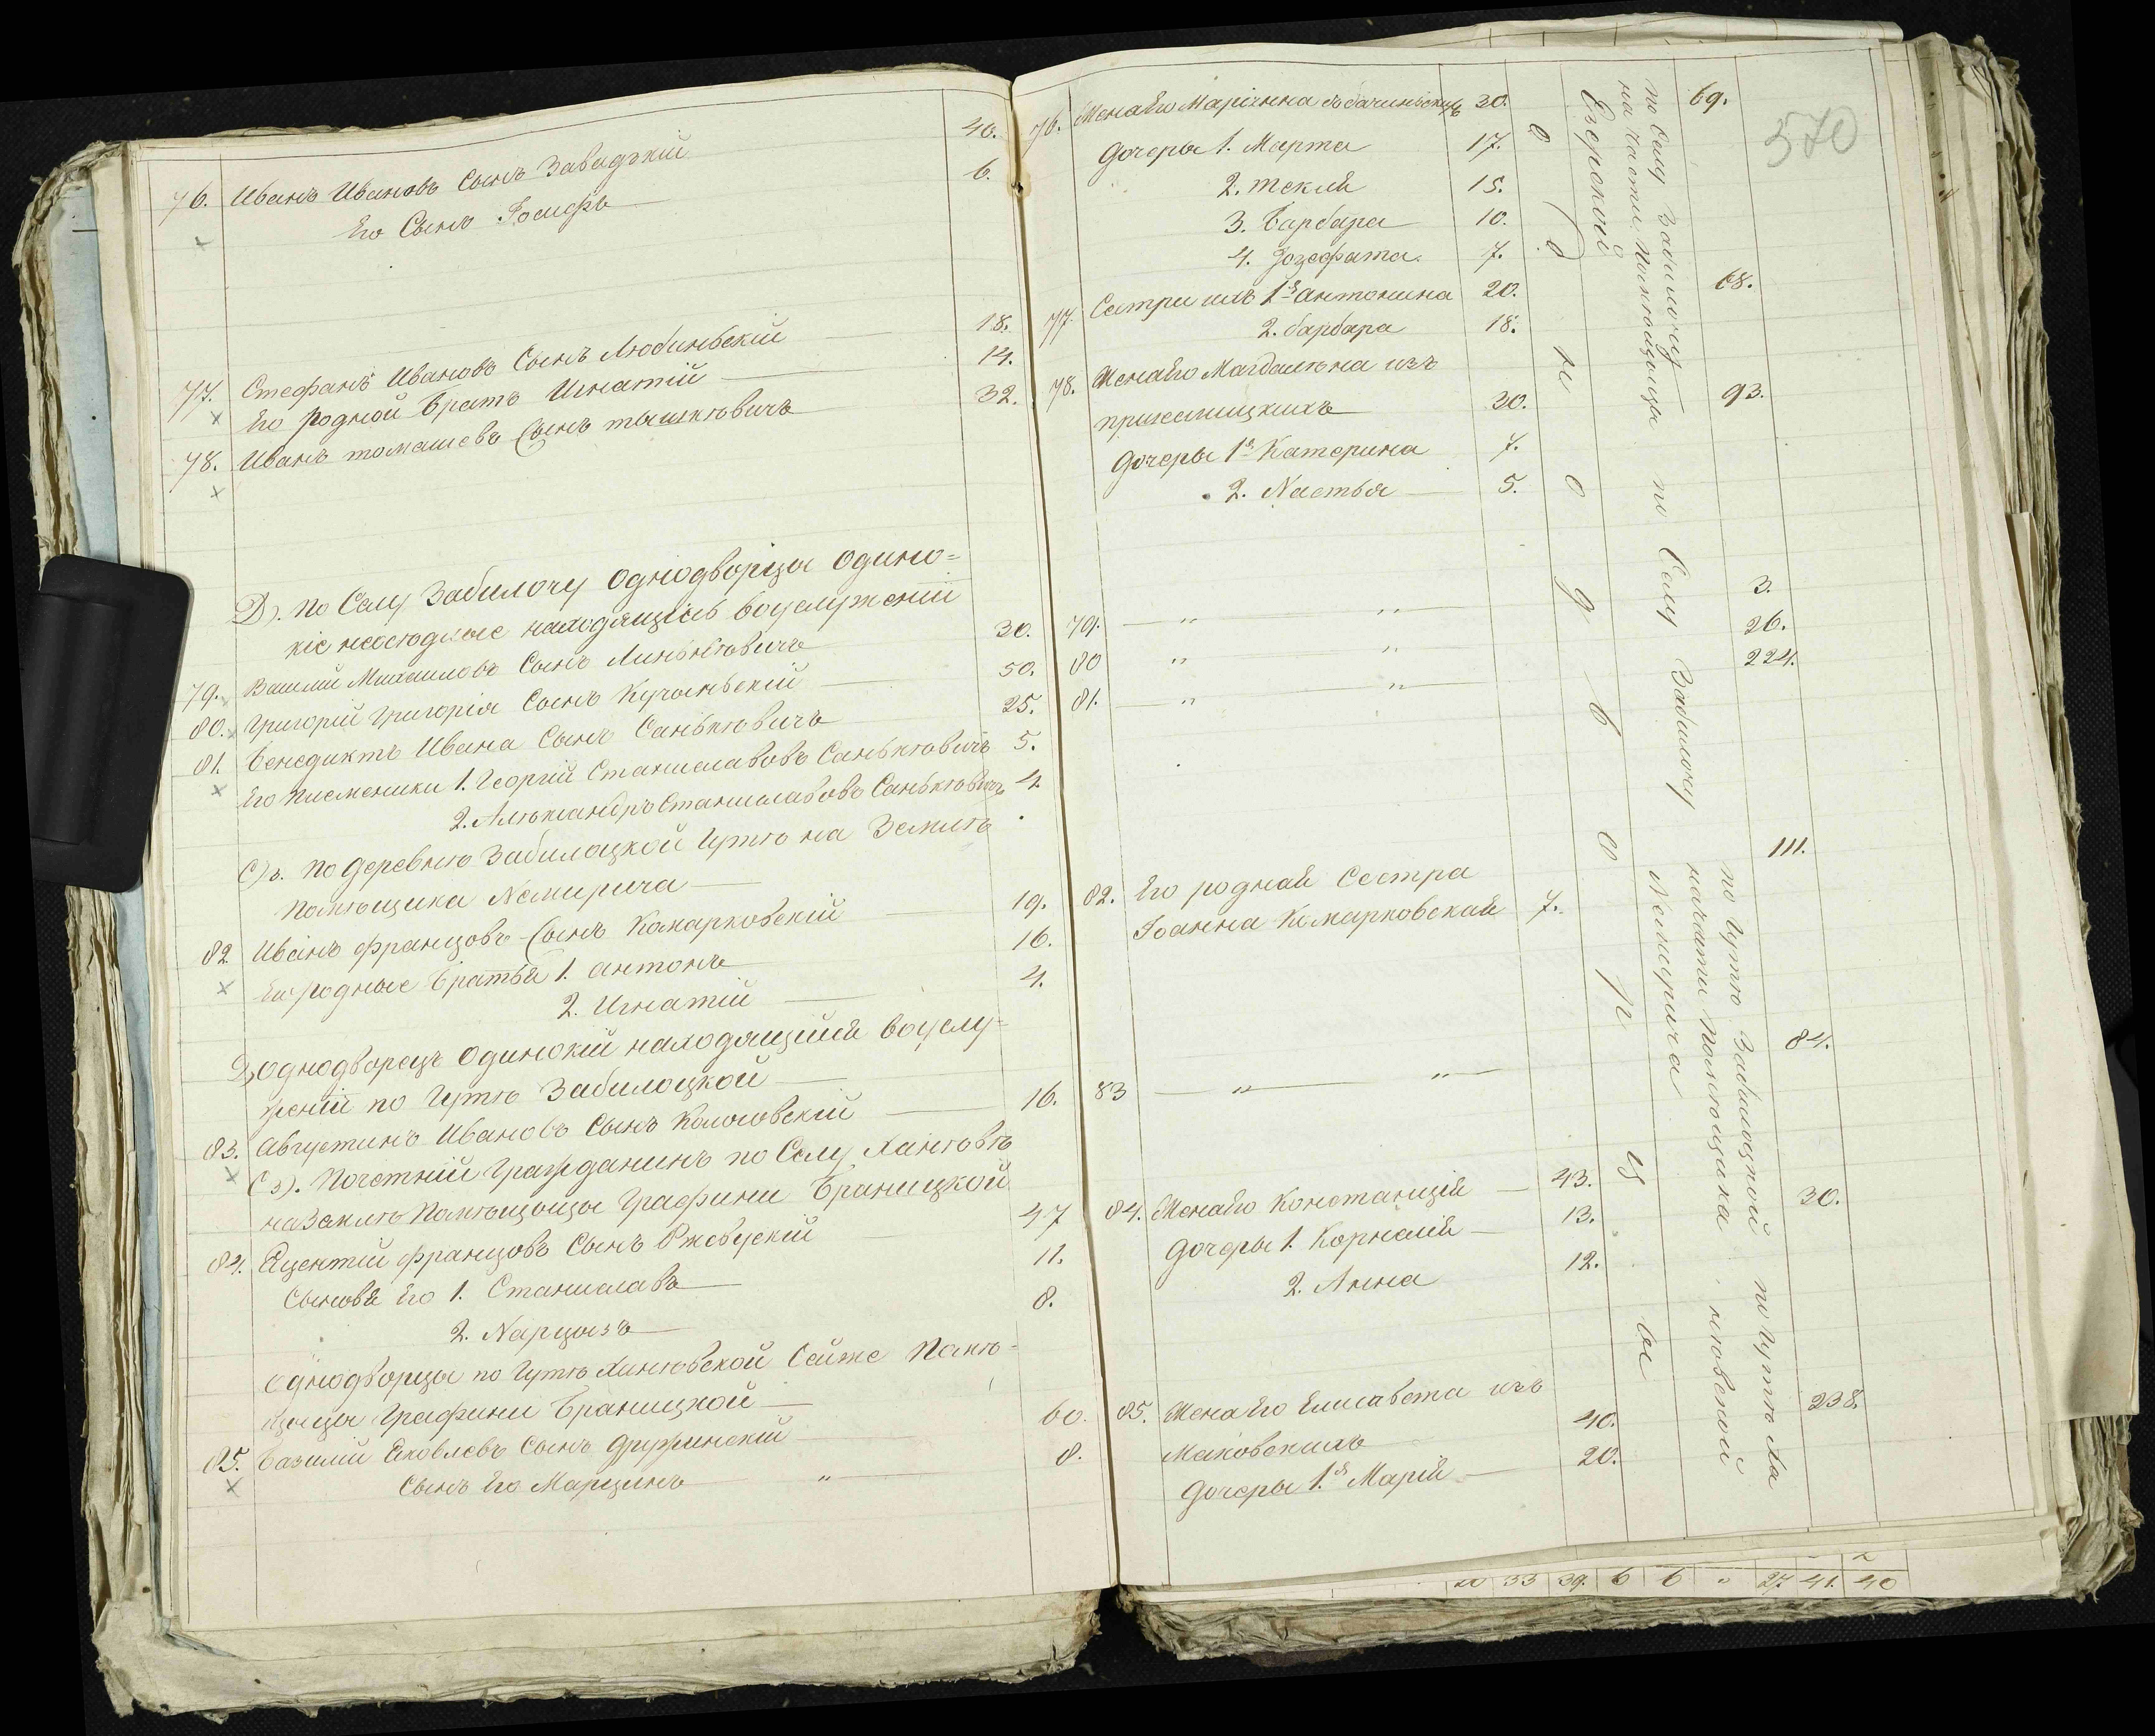 76. Иванъ Ивановъ Сынъ Завадзкій 40.
Его Сынъ Іосифъ 6.
77. Стефанъ Ивановъ Сынъ Любиньскій 18.
Его родной братъ Игнатій 14.
78. Иванъ томашевъ Сынъ тышкѣвичъ 32.
D). по Селу Забилочу однодворцы одино=
кіе неосѣдлые находящіясъ воуслуженіи
79. Василій Михаиловъ Сынъ Линькѣвичъ 30.
80. Григорій Григорія Сынъ Кучиньскій 50.
81. Бенедиктъ Ивана Сынъ Санькѣвичъ 25.
Его племеники 1. Георгій Станиславовъ Санькѣвичъ 5.
2. Алѣксандръ Станиславовъ Санькѣвичъ 4.
С)з. по деревнѣ Забилоцкой Гутѣ на Землѣ
помѣщика Немирича
82 Иванъ францовъ Сынъ Комарковскій 19.
Его родные братья 1. антонъ 16.
2. Игнатій 4.
D) однодворецъ одинокій находящійся воуслу=
женіи по Гутѣ Забилоцкой
83. Августинъ Ивановъ Сынъ Колосовскій 16.
С з). Почетній Гражданинъ по Селу Ханѣвѣ
на Землѣ Помѣщицы Графини Браницкой
84. Яцентій францовъ Сынъ Ржевускій 47
Сыновя Его 1. Станиславъ 11.
2. Нарцызъ 8.
однодворцы по Гутѣ Ханѣвской Сейже помѣ=
щицы Графини Браницкой
85. Базилій Яковлевъ Сынъ Дружинскій 60.
Сынъ Его Марцинъ " 8.
570
76. Жена Его Маріянна 30. 69.
дочеры 1. Марта 17.
2. текля 15.
3. Барбара 10.
4. Іозефата. 7.
77. Сестри ихъ 1я антонина 20. 68.
2. барбара 18.
78. Жена Его Магдалѣна изъ
30. 93.
дочеры 1я Катерина 7.
2. Настья 5.
79. " " 3.
80 " " 26.
81. " " 224.
82. Его родная Сестра 111.
Іоанна Комарковская 7.
83 " " 84.
84. Жена Его Констанція 43. 30.
дочеры 1. Корнелія 13.
2. Анна 12.
85. Жена Его Елисавета изъ 238.
Маковскихъ 40.
дочеры 1.я Марія 20.
О д н о д в о р ц ы
по Селу Забилочу
на части помѣщицы
Езерской
по Селу Забилочу
по Гутѣ Забилоцкой
начасти помѣщика
Немирича
по Гутѣ Ха
нѣвской
33 39. 6 6 " 27 41. 40